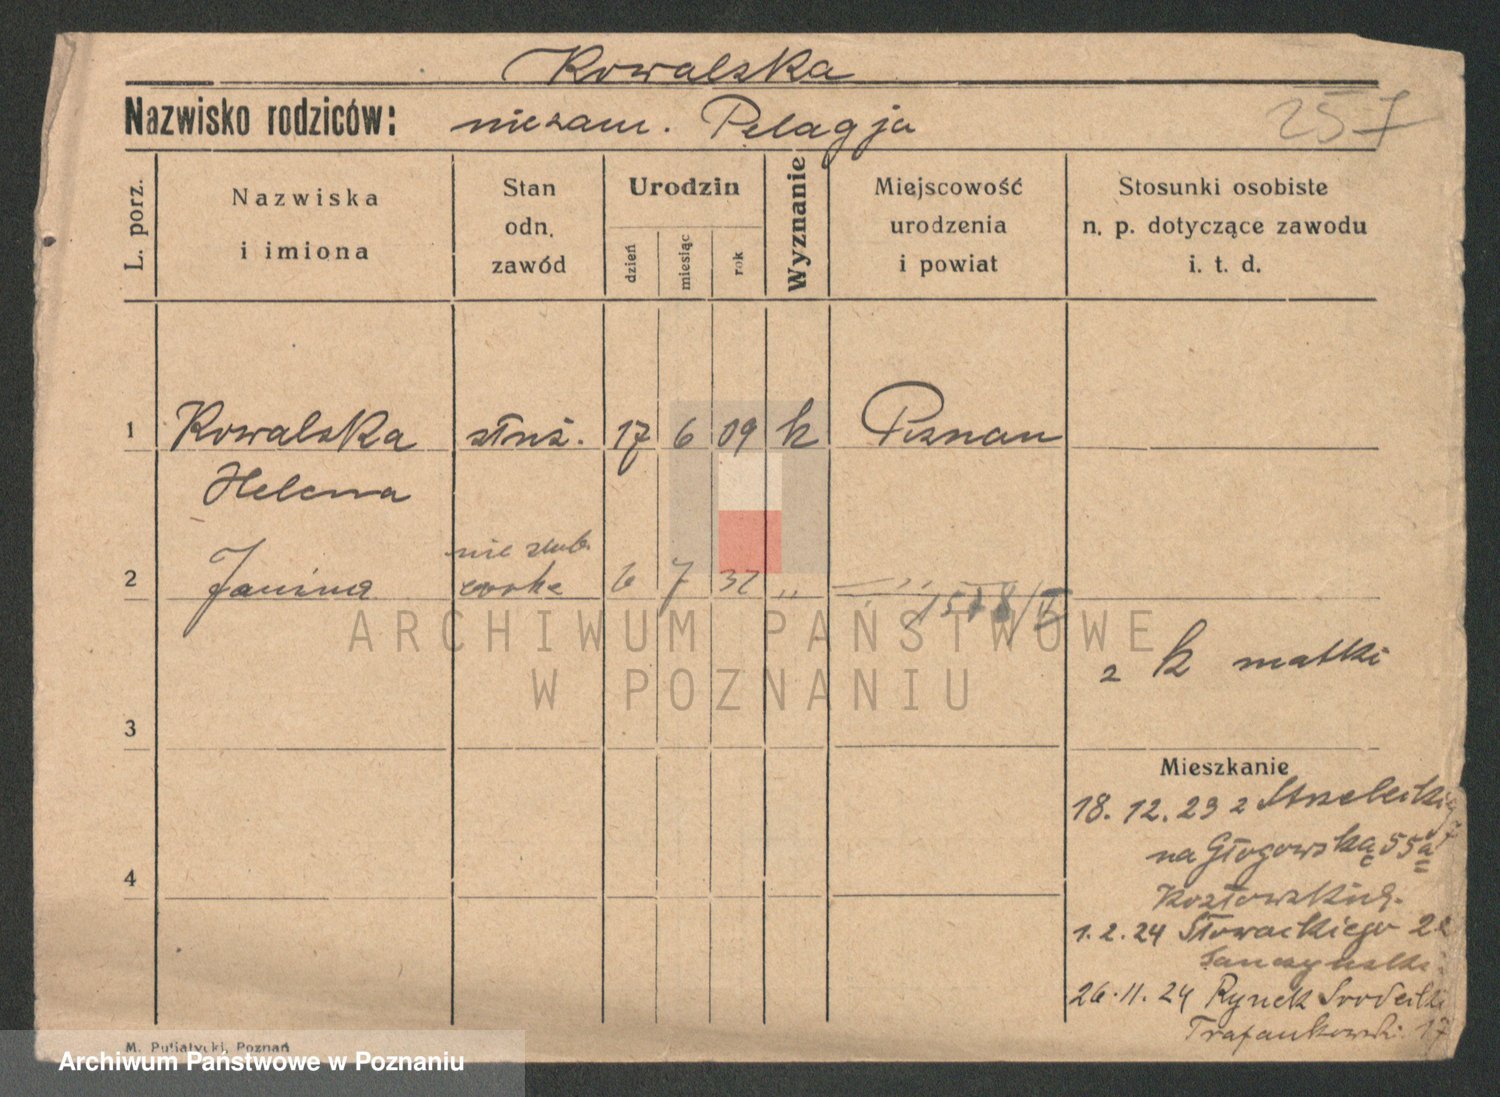 Kowalska
Nazwisko rodziców: niezam. Pelagja
257
L. porz.
Nazwiska
i imiona
Stan
odn.
zawód
Urodzin
dzień
miesiąc
rok
Wyznanie
Miejscowość
urodzenia
i powiat
Stosunki osobiste
n. p. dotyczące zawodu
i. t. d.
1 Kowalska służ. 17 6 09 k Poznan
Helena
nie ślub.
2 Janina corka 6 7 32 „ — „ —
1578/V
z k matki
3
Mieszkanie
18. 12. 23 z Strzelecki
na Głogowską 55a
4
1. 2. 24 Słowackiego 22
26. 11. 24 Rynek Srodecki
17
M. Putiatycki, Poznań
ARCHIWUM PAŃSTWOWE
W POZNANIU
Archiwum Państwowe w Poznaniu